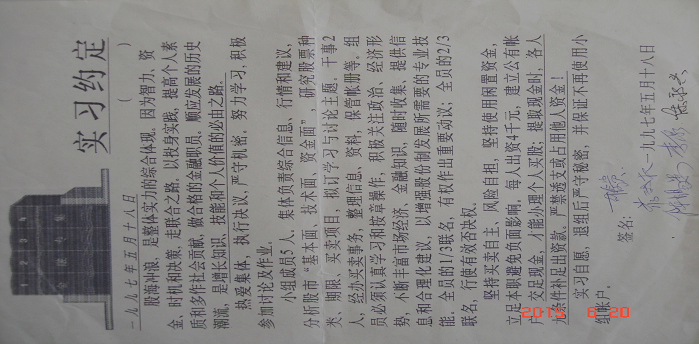 实习约定
一九九七年五月十八日 ( )
股海冲浪，是整体实力的综合体现，因为智力、资
金、时机和决策，走联合之路，以投身实践，提高个人素
质和多作社会贡献，做合格的金融职员，顺应发展的历史
潮流，是增长知识、技能和个人价值的必由之路。
热爱集体，执行决议，严守机密，努力学习，积极
参加讨论及作业。
小组成员5人，集体负责综合信息、行情和建议，
分析股市“基本面、技术面、资金面”，研究股票种
类、期限、买卖项目，拟订学习与讨论主题，干事2
人，经办买卖事务，整理信息、资料，保管帐册等。组
员必须认真学习和按章操作，积极关注政治、经济形
势，不断丰富市场经济、金融知识，随时收集、提供信
息和合理化建议，以增强股份制发展所需要的专业技
能。全员的1/3联名，有权作出重要动议；全员的2/3
联名，行使有效否决权。
坚持买卖自主、风险自担，坚持使用闲置资金，
立足本职避免负面影响，每人出资4千元，建立公有帐
户，交足现金，才能办理个人买股；提取现金时，各人
无条件补足出资款。严禁透支或占用他人资金！
实习自愿，退组后严守秘密，并保证不再使用小
组帐户。
签名：
一九九七年五月十八日
20